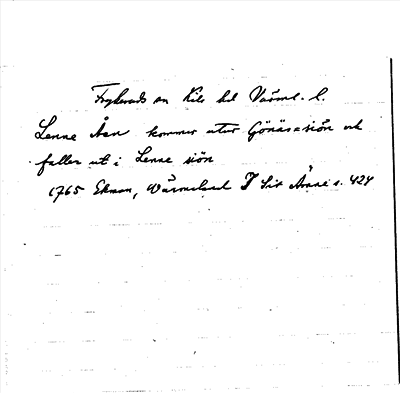 Frykeruds sn Kils hd Värml. l.
Lenne Åen kommer utur Gönäs=siön och
faller ut i Lenne siön
1765 Ekman, Wärmeland I
s. 424